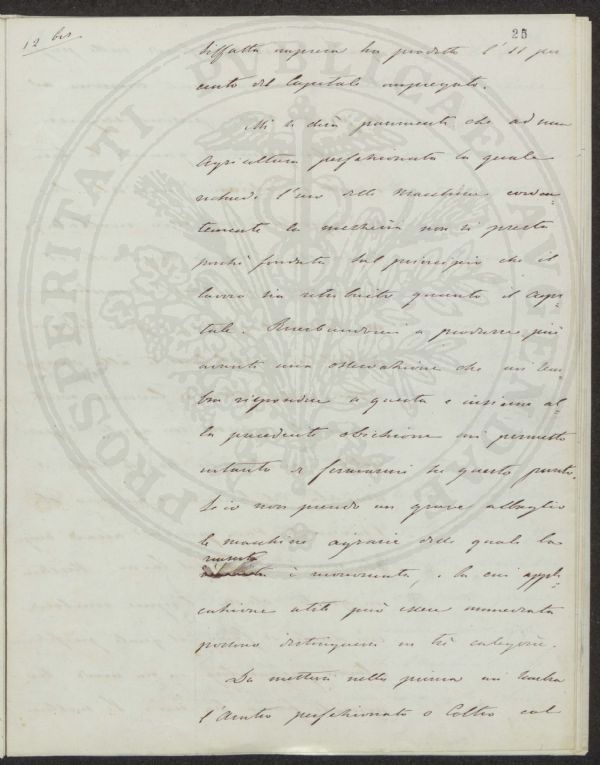 12 bis
25
siffatta impresa ha prodotto l'11 per
cento del Capitale impiegato.
Mi si dirà parimenti che ad una
Agricoltura perfezionata la quale
richiede l'uso delle Macchine
la mezzeria non si presta
perchè fondata sul principio che il
lavoro sia retribuito quanto il capi-
tale. Riserbandomi a produrre più
avanti una osservazione che mi sem-
bra rispondere a questa e insieme al-
la precedente obiezione mi permetto
intanto di fermarmi su questo punto.
Se io non prendo un grave abbaglio
le macchine agrarie delle quali la
è , e la cui appli-
cazione utile può essere immediata
possono distinguersi in tre categorie.
Da mettersi nella prima mi sembra
l'Aratro perfezionato o Coltro col
PROSPERITATI PUBLICAE AUGENDAE